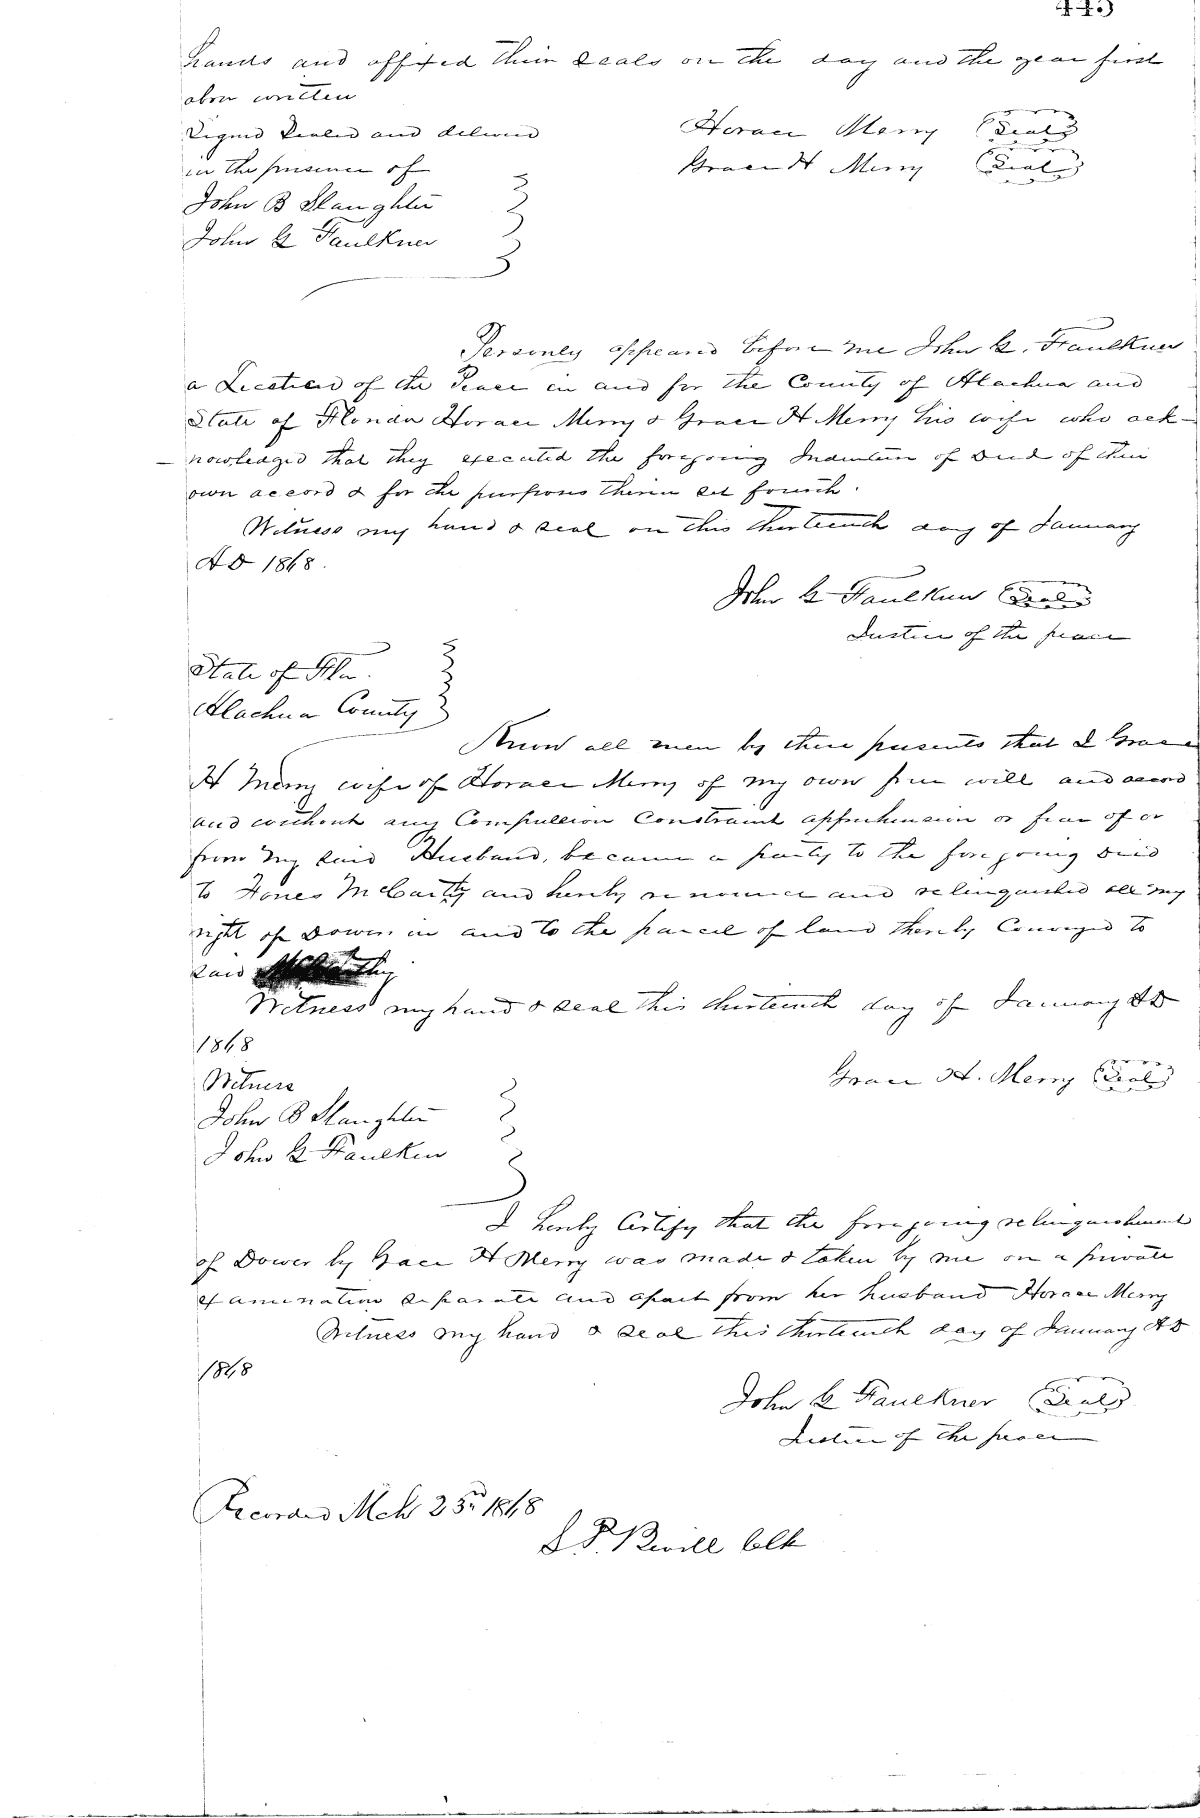 445
hands and affixed their seals on the day and the year first
above written
Signed Sealed and delivered
in the presence of
John B Slaughter
John G Faulkner
Horace Merry (Seal)
Grace H Merry (Seal)
Personly appeared before me John G. Faulkner
a Justice of the Peace in and for the County of Alachua and
State of Florida Horace Merry & Grace H Merry his wife who ack-
-nowledged that they executed the foregoing Indenture of Deed of their
own accord & for the purposes therein set fourth.
Witness my hand & seal on this thirteenth day of January
AD 1868.
John G Faulkner (Seal)
Justice of the peace
State of Fla.
Alachua County
Know all men by these presents that I Grace
H Merry wife of Horace Merry of my own free will and accord
and without any Compulsion Constraint apprehension or fear of or
from my said Husband, became a party to the foregoing Deed
to McCarty and hereby renounce and relinquished all my
right of Dower in and to the parcel of land thereby Conveyed to
said
Witness my hand & seal this thirteenth day of January AD
1868
Grace H. Merry (Seal)
Witness
John B Slaughter
John G Faulkner
I hereby Certify that the foregoing relinquishment
of Dower by Grace H Merry was made & taken by me on a private
examination separate and apart from her husband Horace Merry
Witness my hand & seal this thirteenth day of January AD
1868
John G Faulkner (Seal)
Justice of the peace
Recorded Mch 23rd 1868
S P. Revill Clk